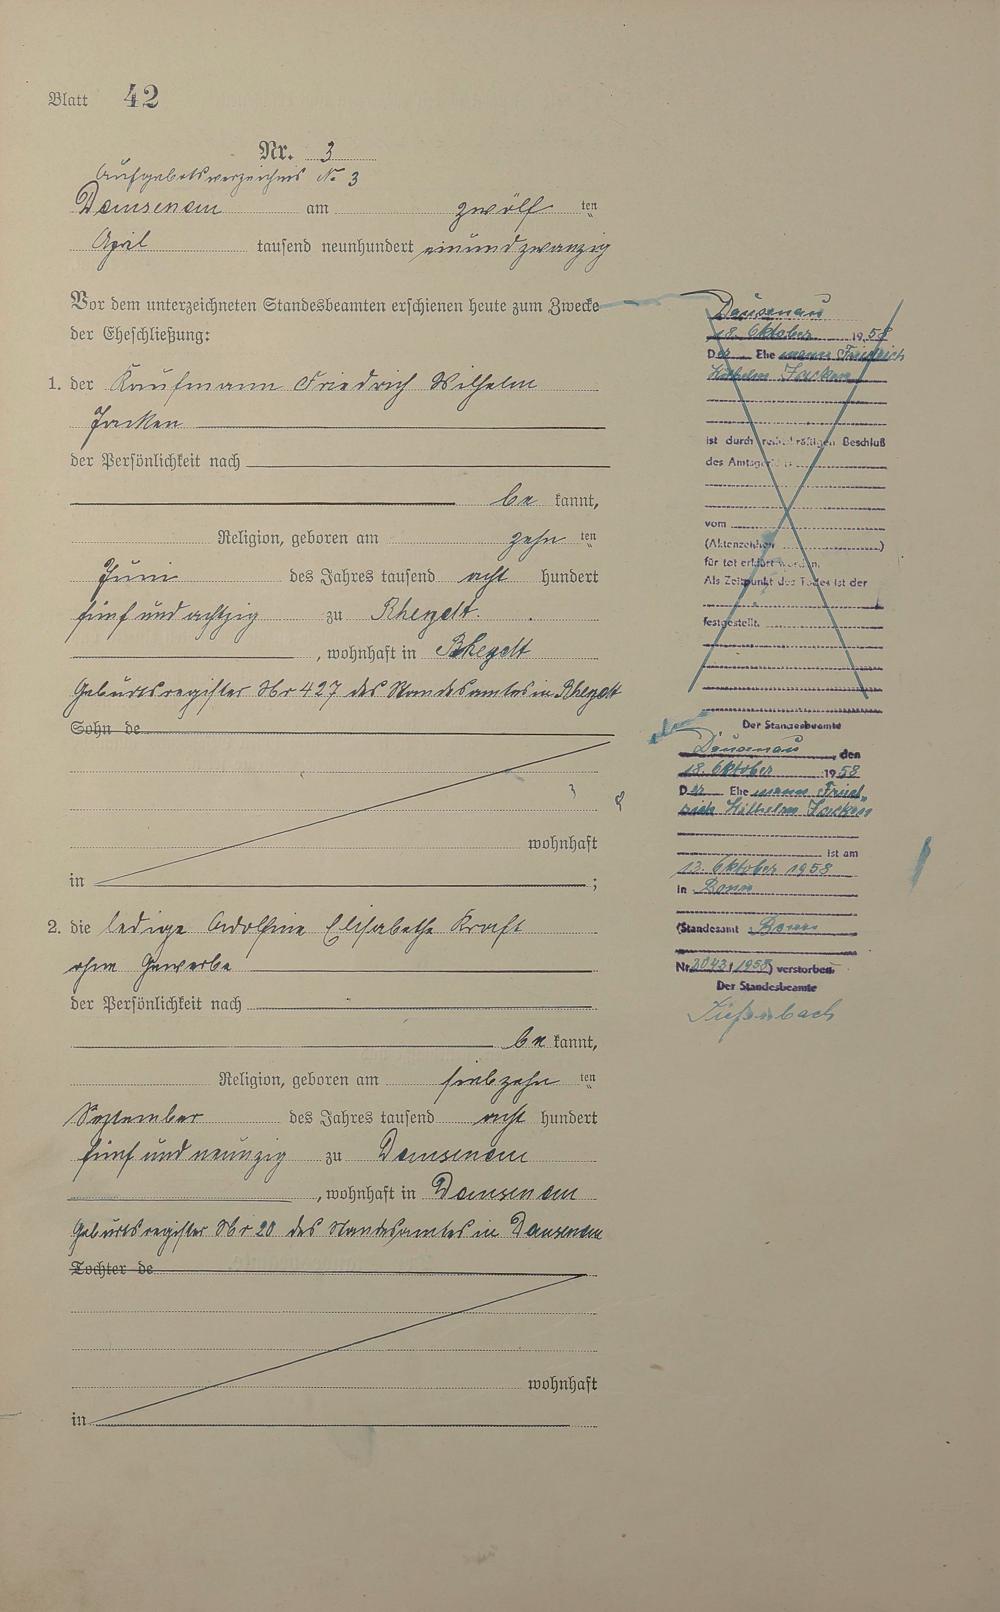 Blatt 42
Nr. 3
Aufgebotsverzeichnis No 3
Dausenau am zwölf ten
April tausend neunhundert einundzwanzig
Vor dem unterzeichneten Standesbeamten erschienen heute zum Zwecke
der Eheschließung:
1. der Kaufmann Friedrich Wilhelm
Jacken
der Persönlichkeit nach
be kannt,
Religion, geboren am zehn ten
Juni des Jahres tausend acht hundert
fünf und achtzig zu Rheydt.
, wohnhaft in Rheydt
Geburtsregister Nr 427 des Standesamtes in Rheydt
Sohn de
wohnhaft
in ;
2. die ledige Adolfine Elisabethe Kraft
ohne Gewerbe
der Persönlichkeit nach
be kannt,
Religion, geboren am siebzehn ten
September des Jahres tausend acht hundert
fünf und neunzig zu Dausenau
, wohnhaft in Dausenau
Geburtsregister Nr 20 des Standesamtes in Dausenau
Tochter de
wohnhaft
in
Dausenau
18. Oktober 19 58
Der Ehe mann Friedrich
Wilhelm Jacken
ist durch rechtskräftigen Beschluß
des Amtsgerichts
vom
(Aktenzeichen )
für tot erklärt worden.
Als Zeitpunkt des Todes ist der
festgestellt.
Der Standesbeamte
Dausenau, den
18. Oktober 19 58
Der Ehe mann Fried-
rich Wilhelm Jacken
ist am
13. Oktober 1958
in Bonn
(Standesamt Bonn
Nr. 2043/1958) verstorben.
Der Standesbeamte